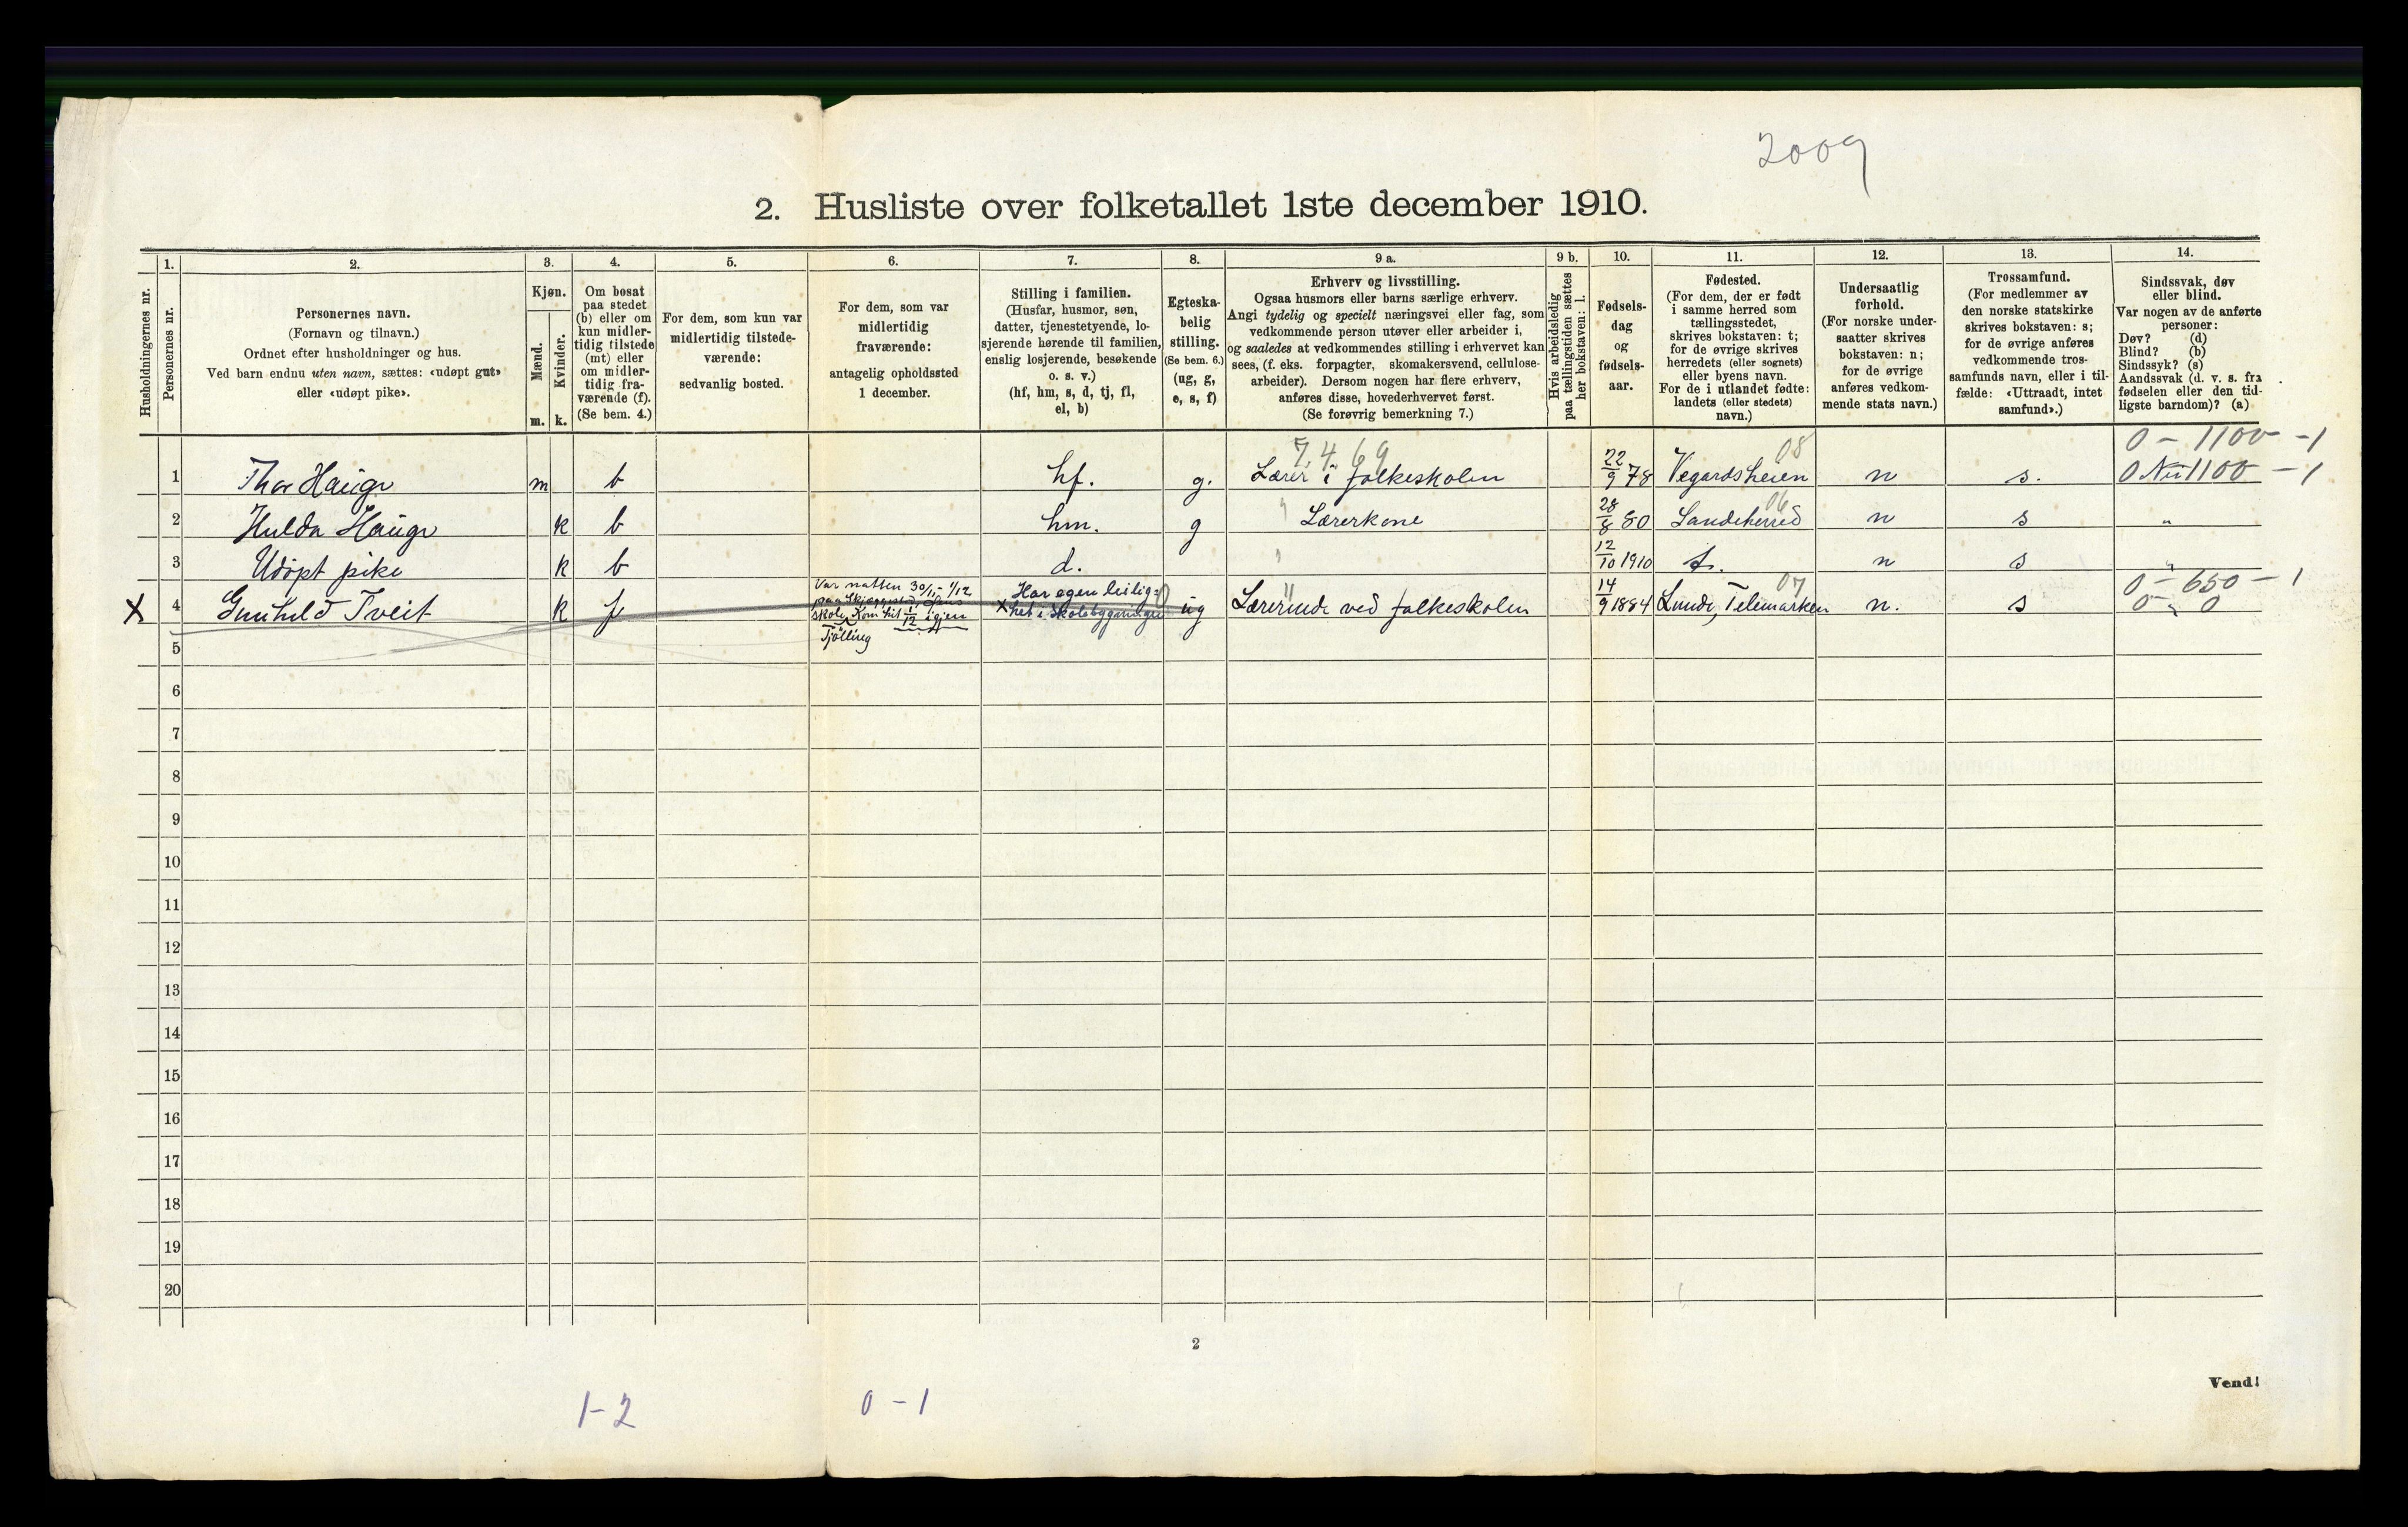 2009
2. Husliste over folketallet 1ste december 1910.
Husholdningernes nr.
1.
Personernes nr.
2.
Personernes navn.
(Fornavn og tilnavn.)
Ordnet efter husholdninger og hus.
Ved barn endnu uten navn, sættes: «udøpt gut»
eller «udøpt pike».
3.
Kjøn.
Mænd.
Kvinder.
m. k.
4.
Om bosat
paa stedet
(b) eller om
kun midler-
tidig tilstede
(mt) eller
om midler-
tidig fra-
værende (f).
(Se bem. 4.)
5.
For dem, som kun var
midlertidig tilstede-
værende:
sedvanlig bosted.
6.
For dem, som var
midlertidig
fraværende:
antagelig opholdssted
1 december.
7.
Stilling i familien.
(Husfar, husmor, søn,
datter, tjenestetyende, lo-
sjerende hørende til familien,
enslig losjerende, besøkende
o. s. v.)
(hf, hm, s, d, tj, fl,
el, b)
8.
Egteska-
belig
stilling.
(Se bem. 6.)
(ug, g,
e, s, f)
9 a.
Erhverv og livsstilling.
Ogsaa husmors eller barns særlige erhverv.
Angi tydelig og specielt næringsvei eller fag, som
vedkommende person utøver eller arbeider i,
og saaledes at vedkommendes stilling i erhvervet kan
sees, (f. eks. forpagter, skomakersvend, cellulose-
arbeider). Dersom nogen har flere erhverv,
anføres disse, hovederhvervet først.
(Se forøvrig bemerkning 7.)
9 b.
Hvis arbeidsledig
paa tællingstiden sættes
her bokstaven: l.
10.
Fødsels-
dag
og
fødsels-
aar.
11.
Fødested.
(For dem, der er født
i samme herred som
tællingsstedet,
skrives bokstaven: t;
for de øvrige skrives
herredets (eller sognets)
eller byens navn.
For de i utlandet fødte:
landets (eller stedets)
navn.)
12.
Undersaatlig
forhold.
(For norske under-
saatter skrives
bokstaven: n;
for de øvrige
anføres vedkom-
mende stats navn.)
13.
Trossamfund.
(For medlemmer av
den norske statskirke
skrives bokstaven: s;
for de øvrige anføres
vedkommende tros-
samfunds navn, eller i til-
fælde: «Uttraadt, intet
samfund».)
14.
Sindssvak, døv
eller blind.
Var nogen av de anførte
personer:
Døv? (d)
Blind? (b)
Sindssyk? (s)
Aandssvak (d. v. s. fra
fødselen eller den tid-
ligste barndom)? (a)
7.4.69 08 0 - 1100 - 1
1 Thor Hauge m b hf. g. Lærer i folkeskolen 22/9 78 Vegardsheien n s. 0 1100 - 1
06
2 Hulda Hauge k b hm. g Lærerkone 28/8 80 Sandeherred n s "
3 Udøpt pike k b d. 12/10 1910 t. n s "
Var natten 30/11-1/12 Har egen leilig= 07 0 - 650 - 1
X 4 Gunhild Tveit k f skole Kom hit 1/12 igjen X het i Skolebygningen ug Lærerinde ved folkeskolen 14/9 1884 Lunde, Telemarken n. s 0 " 0
Tjølling
5
6
7
8
9
10
11
12
13
14
15
16
17
18
19
20
2
Vend!
1-2 0-1